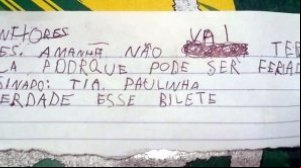 NHORES
ES. AMANHÃ NÃO VAI TE
LA PODRQUE PODE SER FERIAD
SINADO: TIA. PAULINHA
ERDADE ESSE BILETE